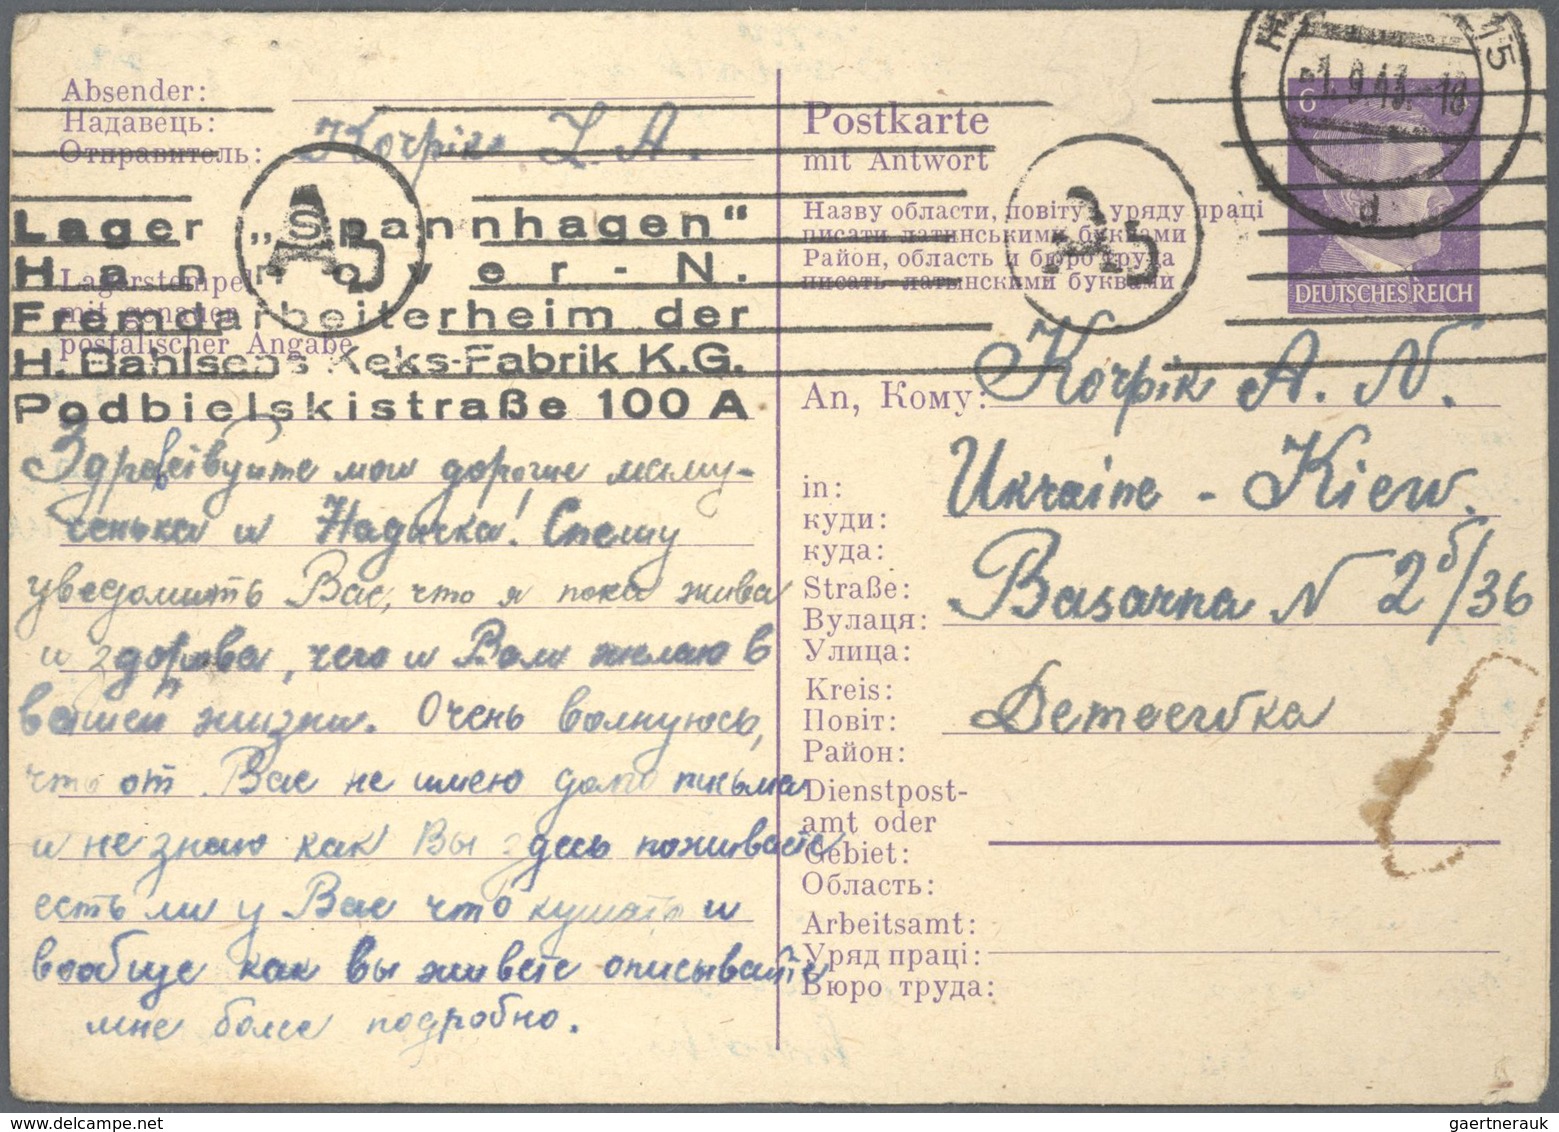 Absender:
Надавець:
Отправитель:
Korpik L. A.
Lager „Spannhagen“
Hannover-N.
Fremdarbeiterheim der
H. Bahlsens Keks-Fabrik K.G.
Podbielskistraße 100 A
Lagerstempel
mit genauer
postalischer Angabe
Здравствуйте мои дорогие маму-
сенька и Надичка! Спешу
уведомить Вас, что я пока жива
и здорова, чего и Вам желаю в
вашей жизни. Очень волнуюсь,
что от Вас не имею долго письма
и не знаю как Вы здесь поживаете
есть ли у Вас что кушать и
вообще как вы живете описывайте
мне более подробно.
Postkarte
mit Antwort
Назву области, повіту й уряду праці
писати латинськими буквами
Район, область и бюро труда
писать латынскими буквами
6
DEUTSCHES REICH
-1.9.43.-18
15
d
Ab
Ab
An, Кому: Korpik A. N.
in:
куди:
куда:
Ukraine - Kiew.
Straße:
Вулаця:
Улица:
Basarna N 2б/36
Kreis:
Повіт:
Район:
Demeewka
Dienstpost-
amt oder
Gebiet:
Область:
Arbeitsamt:
Уряд праці:
Бюро труда:
gaertnerauk